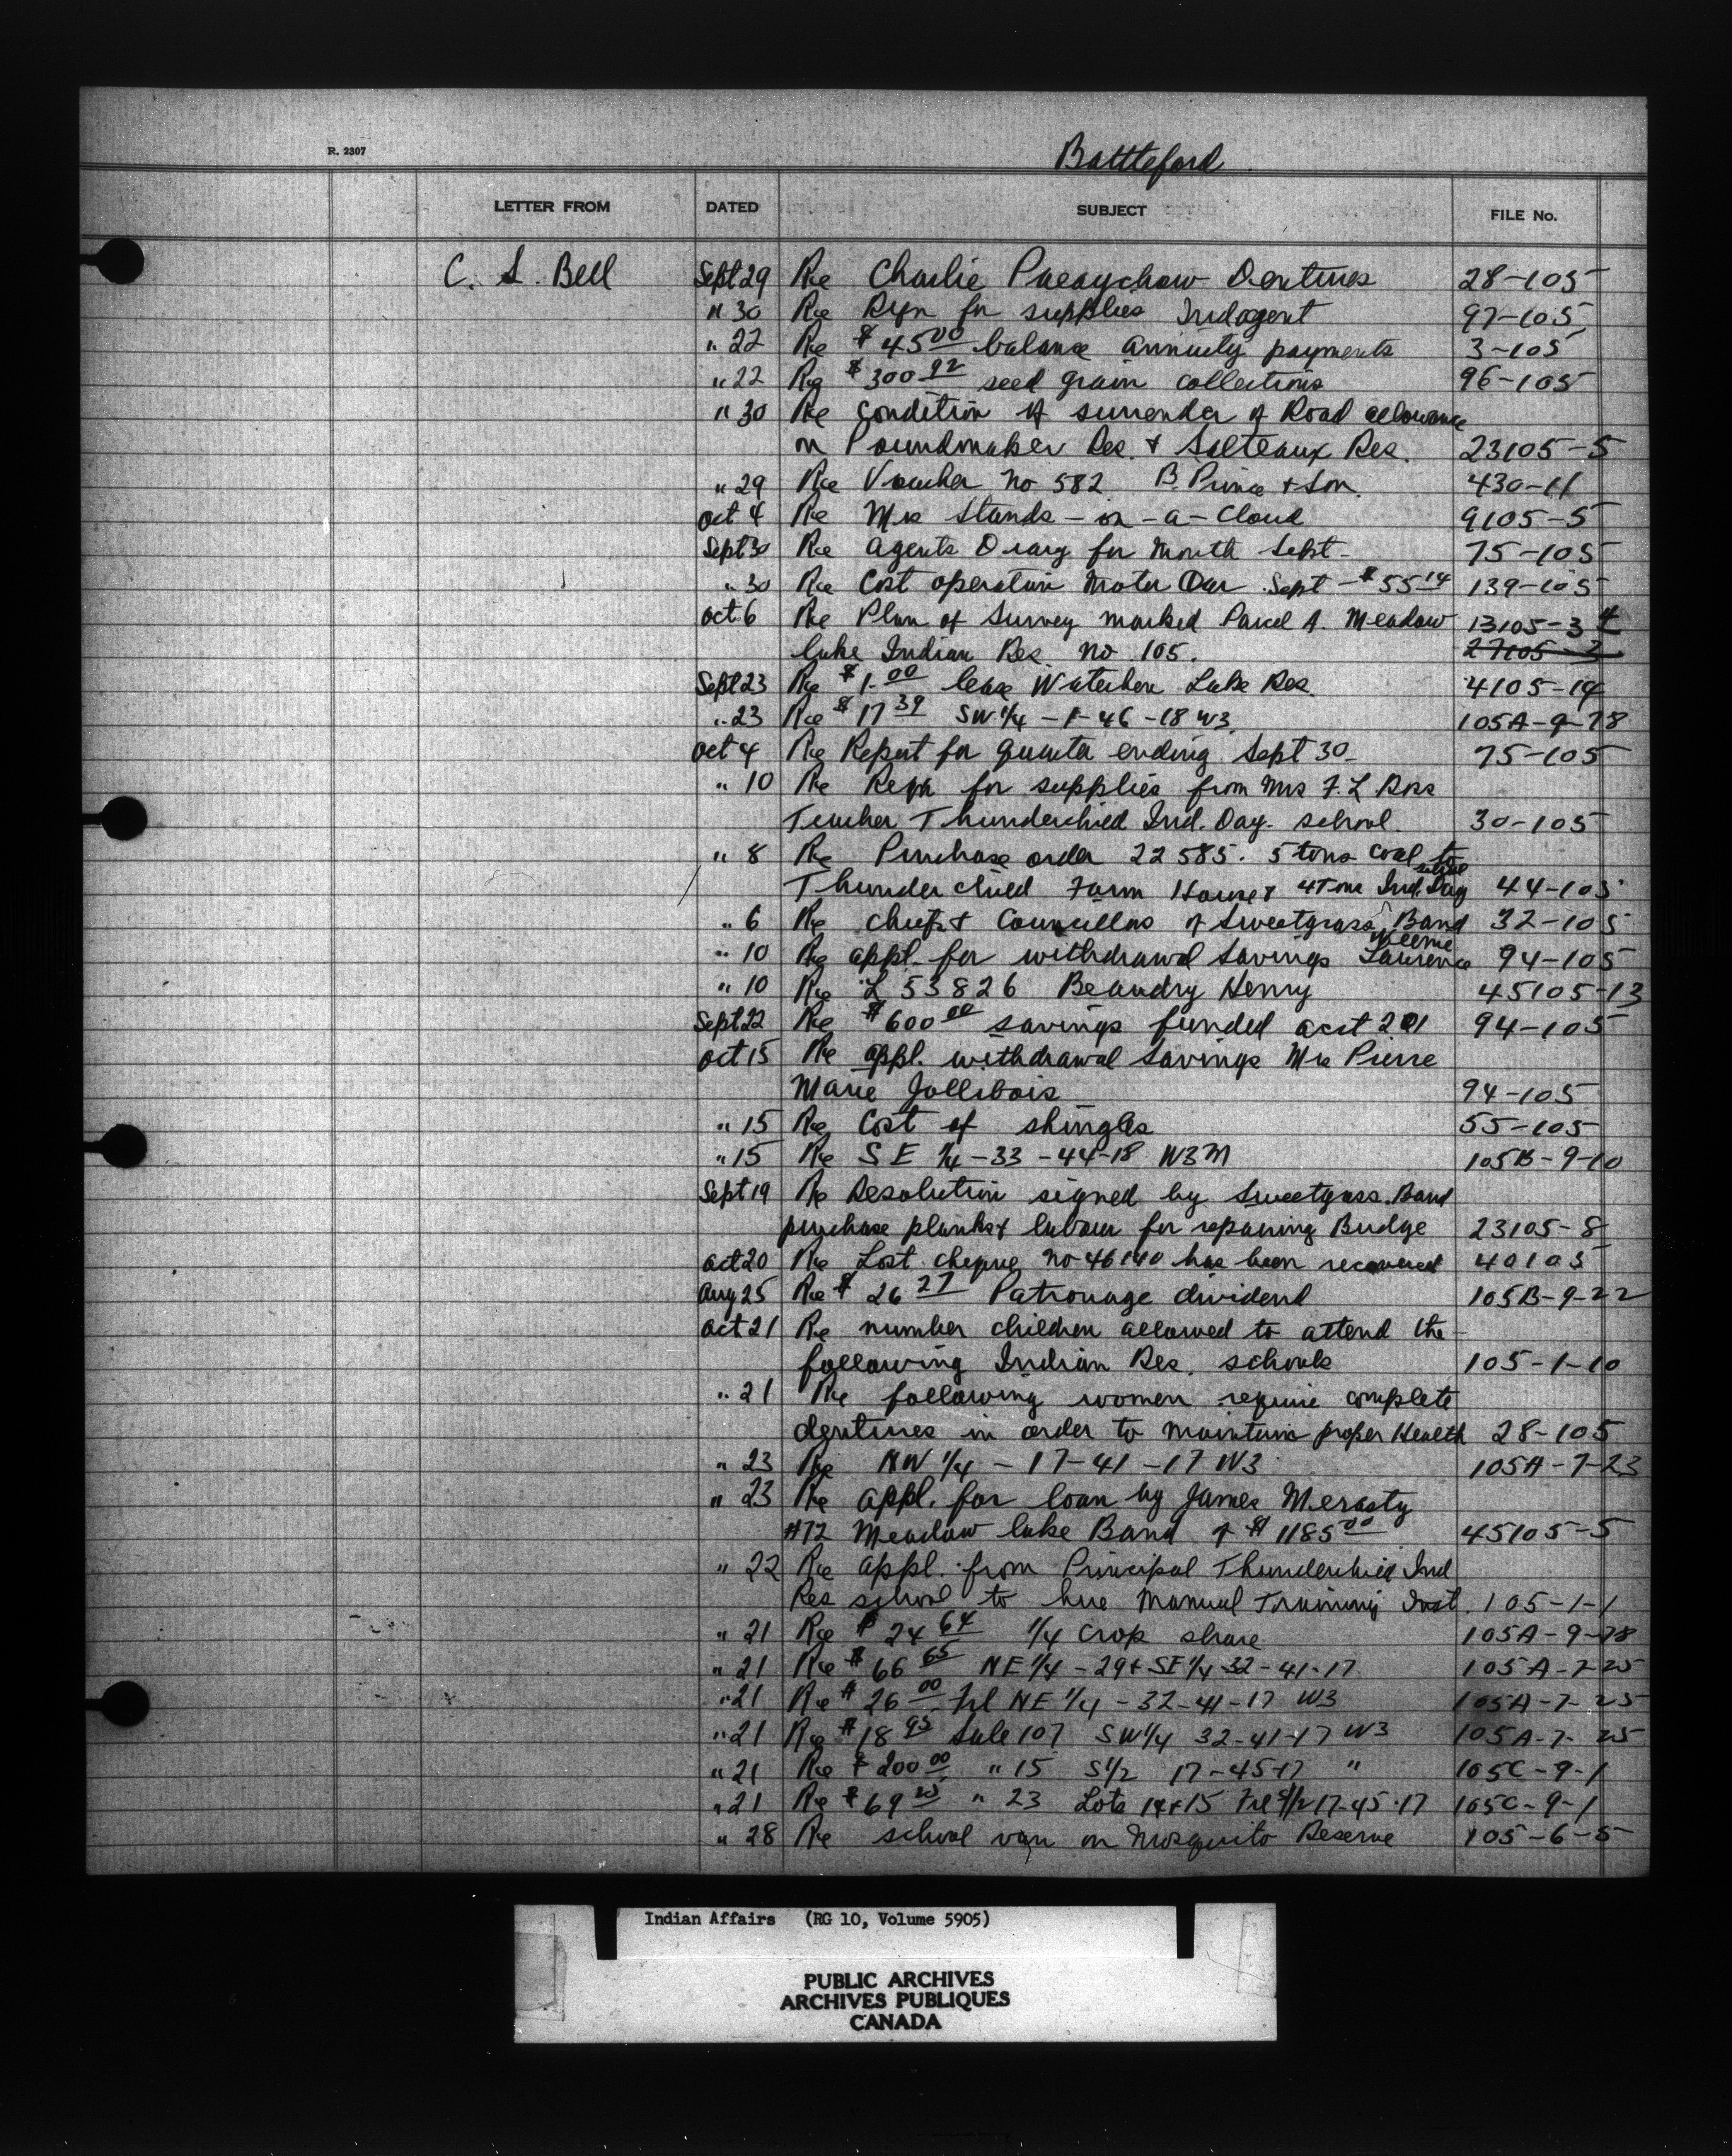 R. 2307
Battleford
LETTER FROM DATED SUBJECT FILE No.
C. S. Bell Sept 29 Re Charlie Dentures 28-105
" 30 Re Rqn for supplies Indagent 97-105
" 22 Re $45 00 balance annuity payments 3-105
" 22 Re $300 92 seed grain collections 96-105
" 30 Re Condition of surrender of Road allowance
on Poundmaker Res. & Salteaux Res. 23105-5
" 29 Re Voucher No 582 B. Prince & Son. 430-11
Oct 4 Re Mrs Stands-on-a-Cloud 9105-5
Sept 30 Re Agents Diary for Month Sept- 75-105
" 30 Re Cost operation Motor Car Sept-$55 14 139-105
Oct 6 Re Plan of Survey marked Parcel A. Meadow 13105-3
lake Indian Res. No 105. 27105-3
Sept 23 Re $1.00 lease Waterhen Lake Res. 4105-14
" 23 Re $17 39 SW 1/4-1-46-18 W3 105A-9-78
Oct 4 Re Report for quarter ending Sept 30- 75-105
" 10 Re Reqn for supplies from Mrs F. L. Ross
Teacher Thunderchied Ind. Day. school. 30-105
" 8 Re Purchase order 22585. 5 tons coal to
school
Thunderchied Farm House & 4 Tons Ind. Day 44-105
" 6 Re Chief & Councillors of Sweetgrass Band 32-105
" 10 Re appl. for withdrawal Savings Laurence 94-105
" 10 Re L 53826 Beaudry Henry 45105-13
Sept 22 Re $600 00 savings funded acct 201 94-105
Oct 15 Re appl. withdrawal Savings Mrs Pierre
Marie Jollibois 94-105
" 15 Re Cost of shingles 55-105
" 15 Re S E 1/4-33-44-18 W3M 105B-9-10
Sept 19 Re Resolution signed by Sweetgrass Band
purchase planks & labour for repairing Bridge 23105-8
Oct 20 Re Lost cheque No 46140 has been recovered 40105
Aug 25 Re $26 27 Patronage dividend 105B-9-22
Oct 21 Re number children allowed to attend the
following Indian Res. schools 105-1-10
" 21 Re following women require complete
dentures in order to maintain proper Health 28-105
" 23 Re NW 1/4-17-41-17 W3 105A-7-23
" 23 Re appl. for loan by James Merasty
#72 Meadow lake Band of $1185 00 45105-5
" 22 Re appl. from Principal Thunderchied Ind
Res school to hire Manual Training Inst. 105-1-1
" 21 Re $24 64 1/4 crop share 105A-9-78
" 21 Re $66 65 NE 1/4-29 & SE 1/4 32-41-17 105A-7-25
" 21 Re $26 00 Frl NE 1/4-32-41-17 W3 105A-7-25
" 21 Re $18 95 Sale 107 SW 1/4 32-41-17 W3 105A-7-25
" 21 Re $200 00 " 15 S 1/2 17-45-17 " 105C-9-1
" 21 Re $69 25 " 23 Lots 14 & 15 Frl S 1/2 17-45-17 105C-9-1
" 28 Re school van on Mosquito Reserve 105-6-5
Indian Affairs (RG 10, Volume 5905)
PUBLIC ARCHIVES
ARCHIVES PUBLIQUES
CANADA